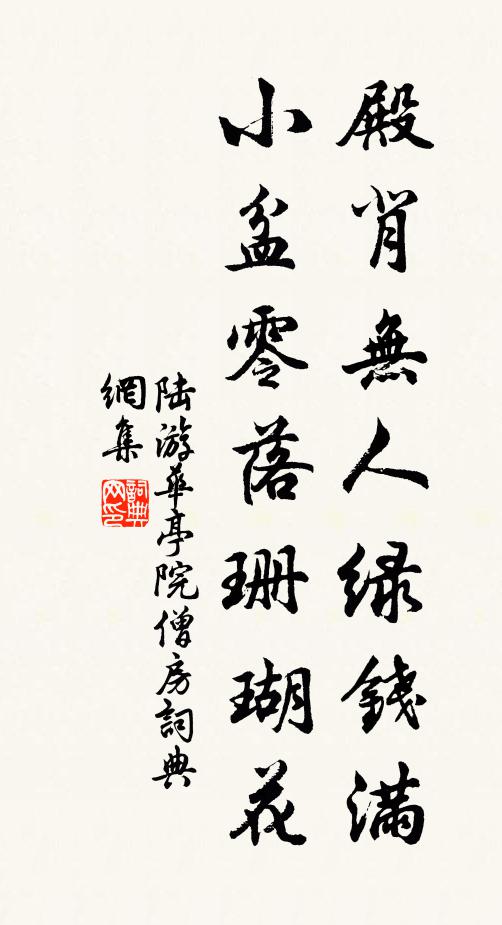 殿背無人緑錢滿
小盆零落珊瑚花
陸游華亭院僧房詞典
網集
詞典
网印